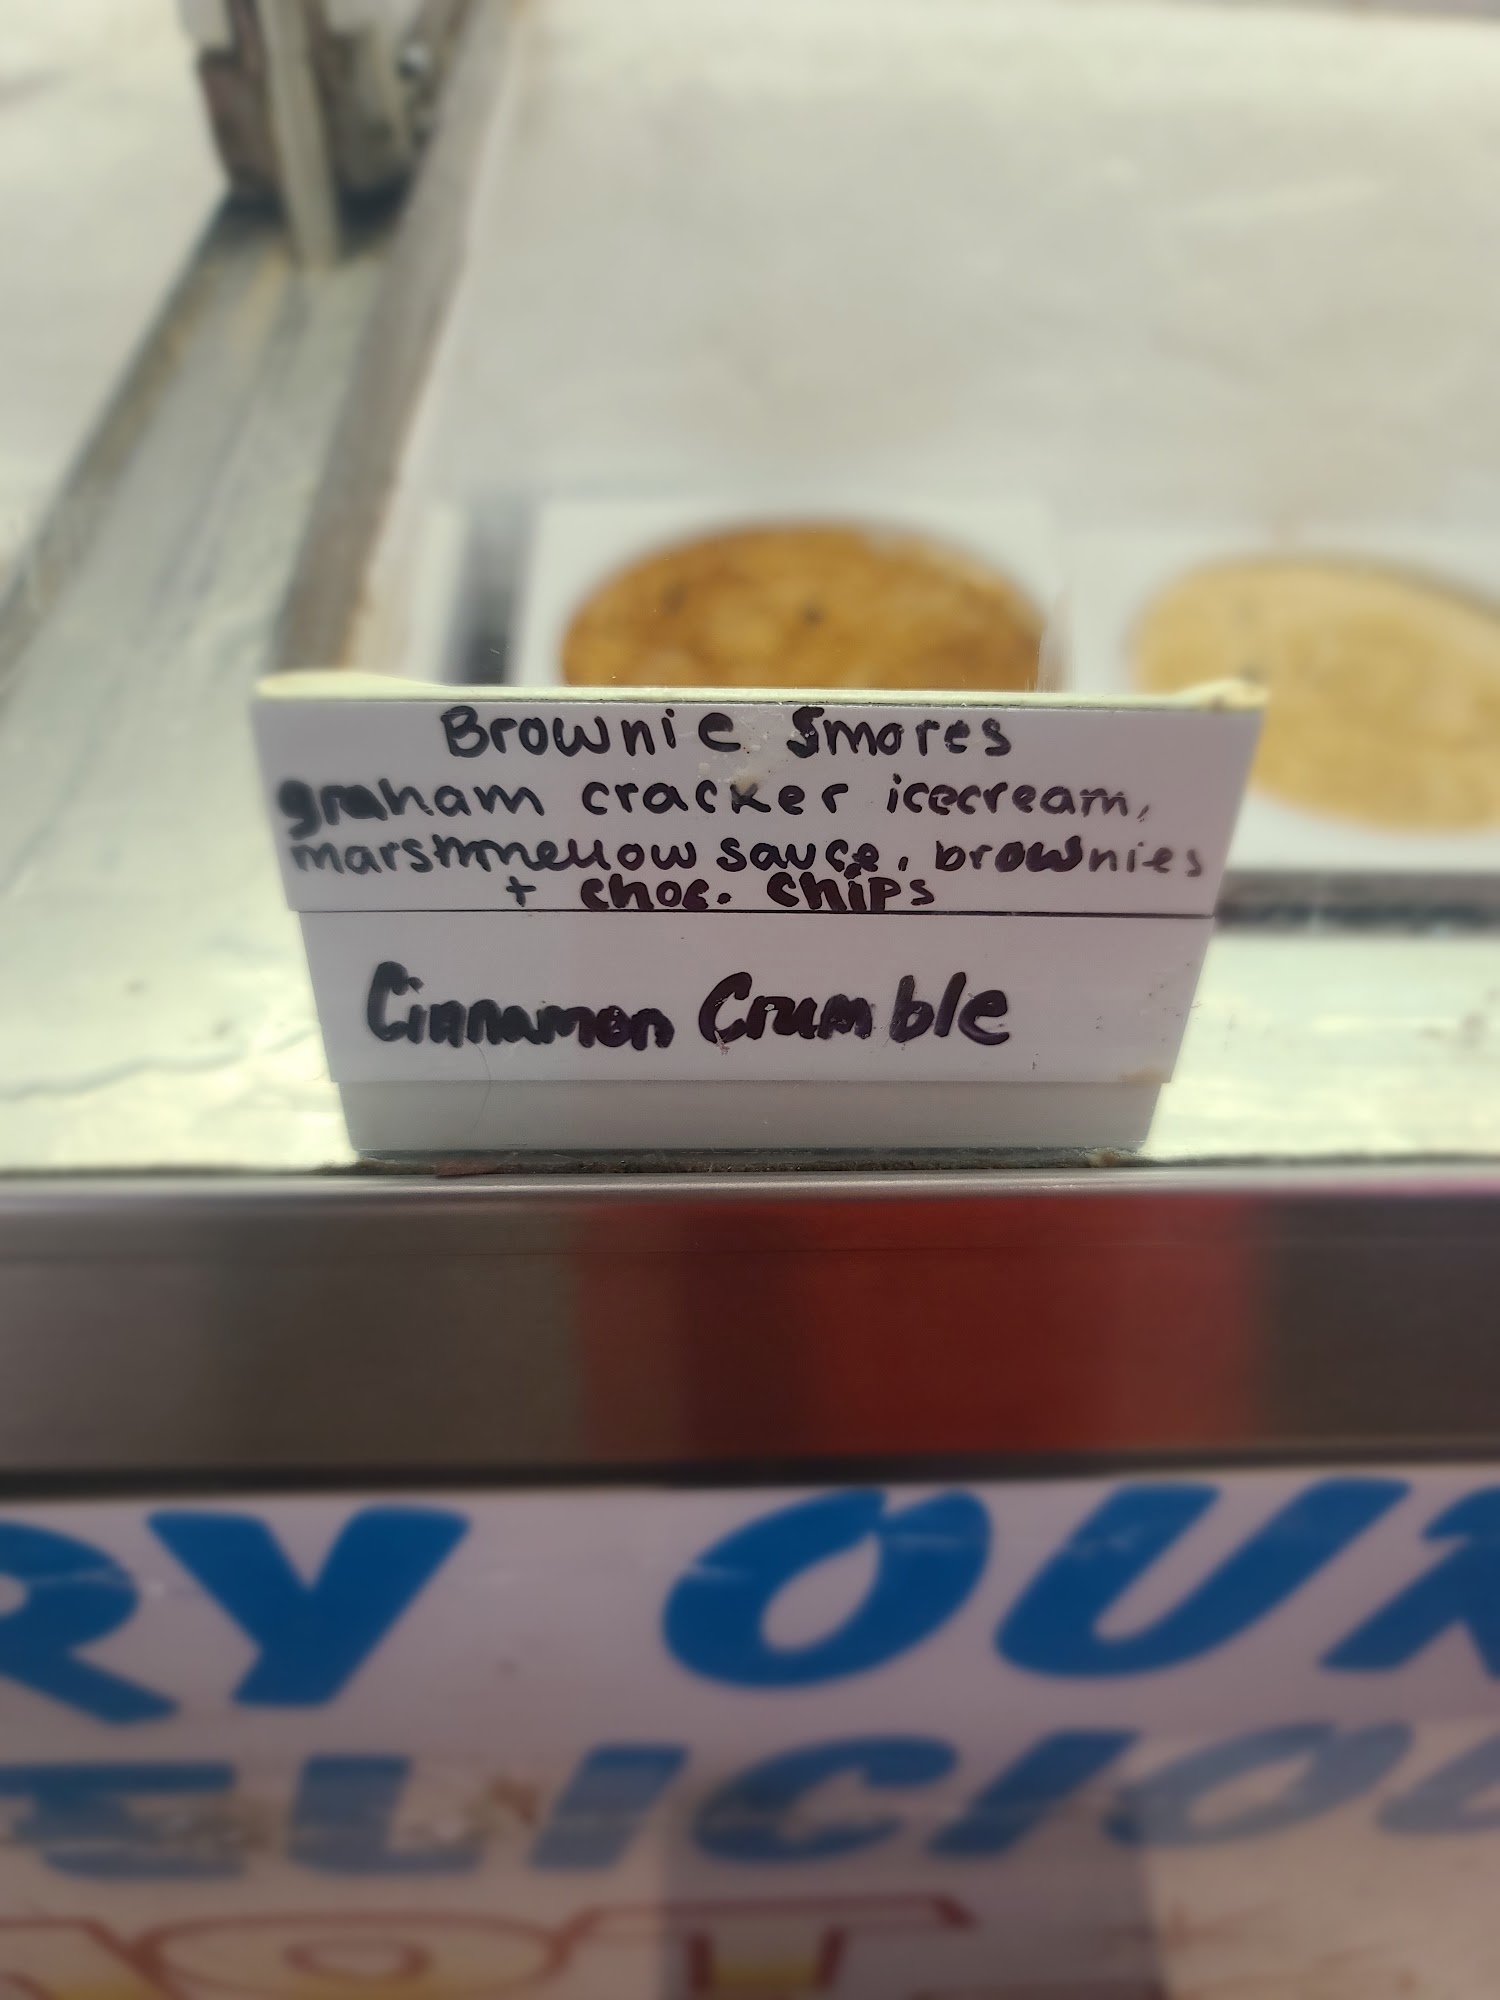 Brownie Smores
graham cracker icecream,
marshmellow sauce, brownies
+ choc. chips
Cinnamon Crumble
RY OUR
ELICIOU
OT